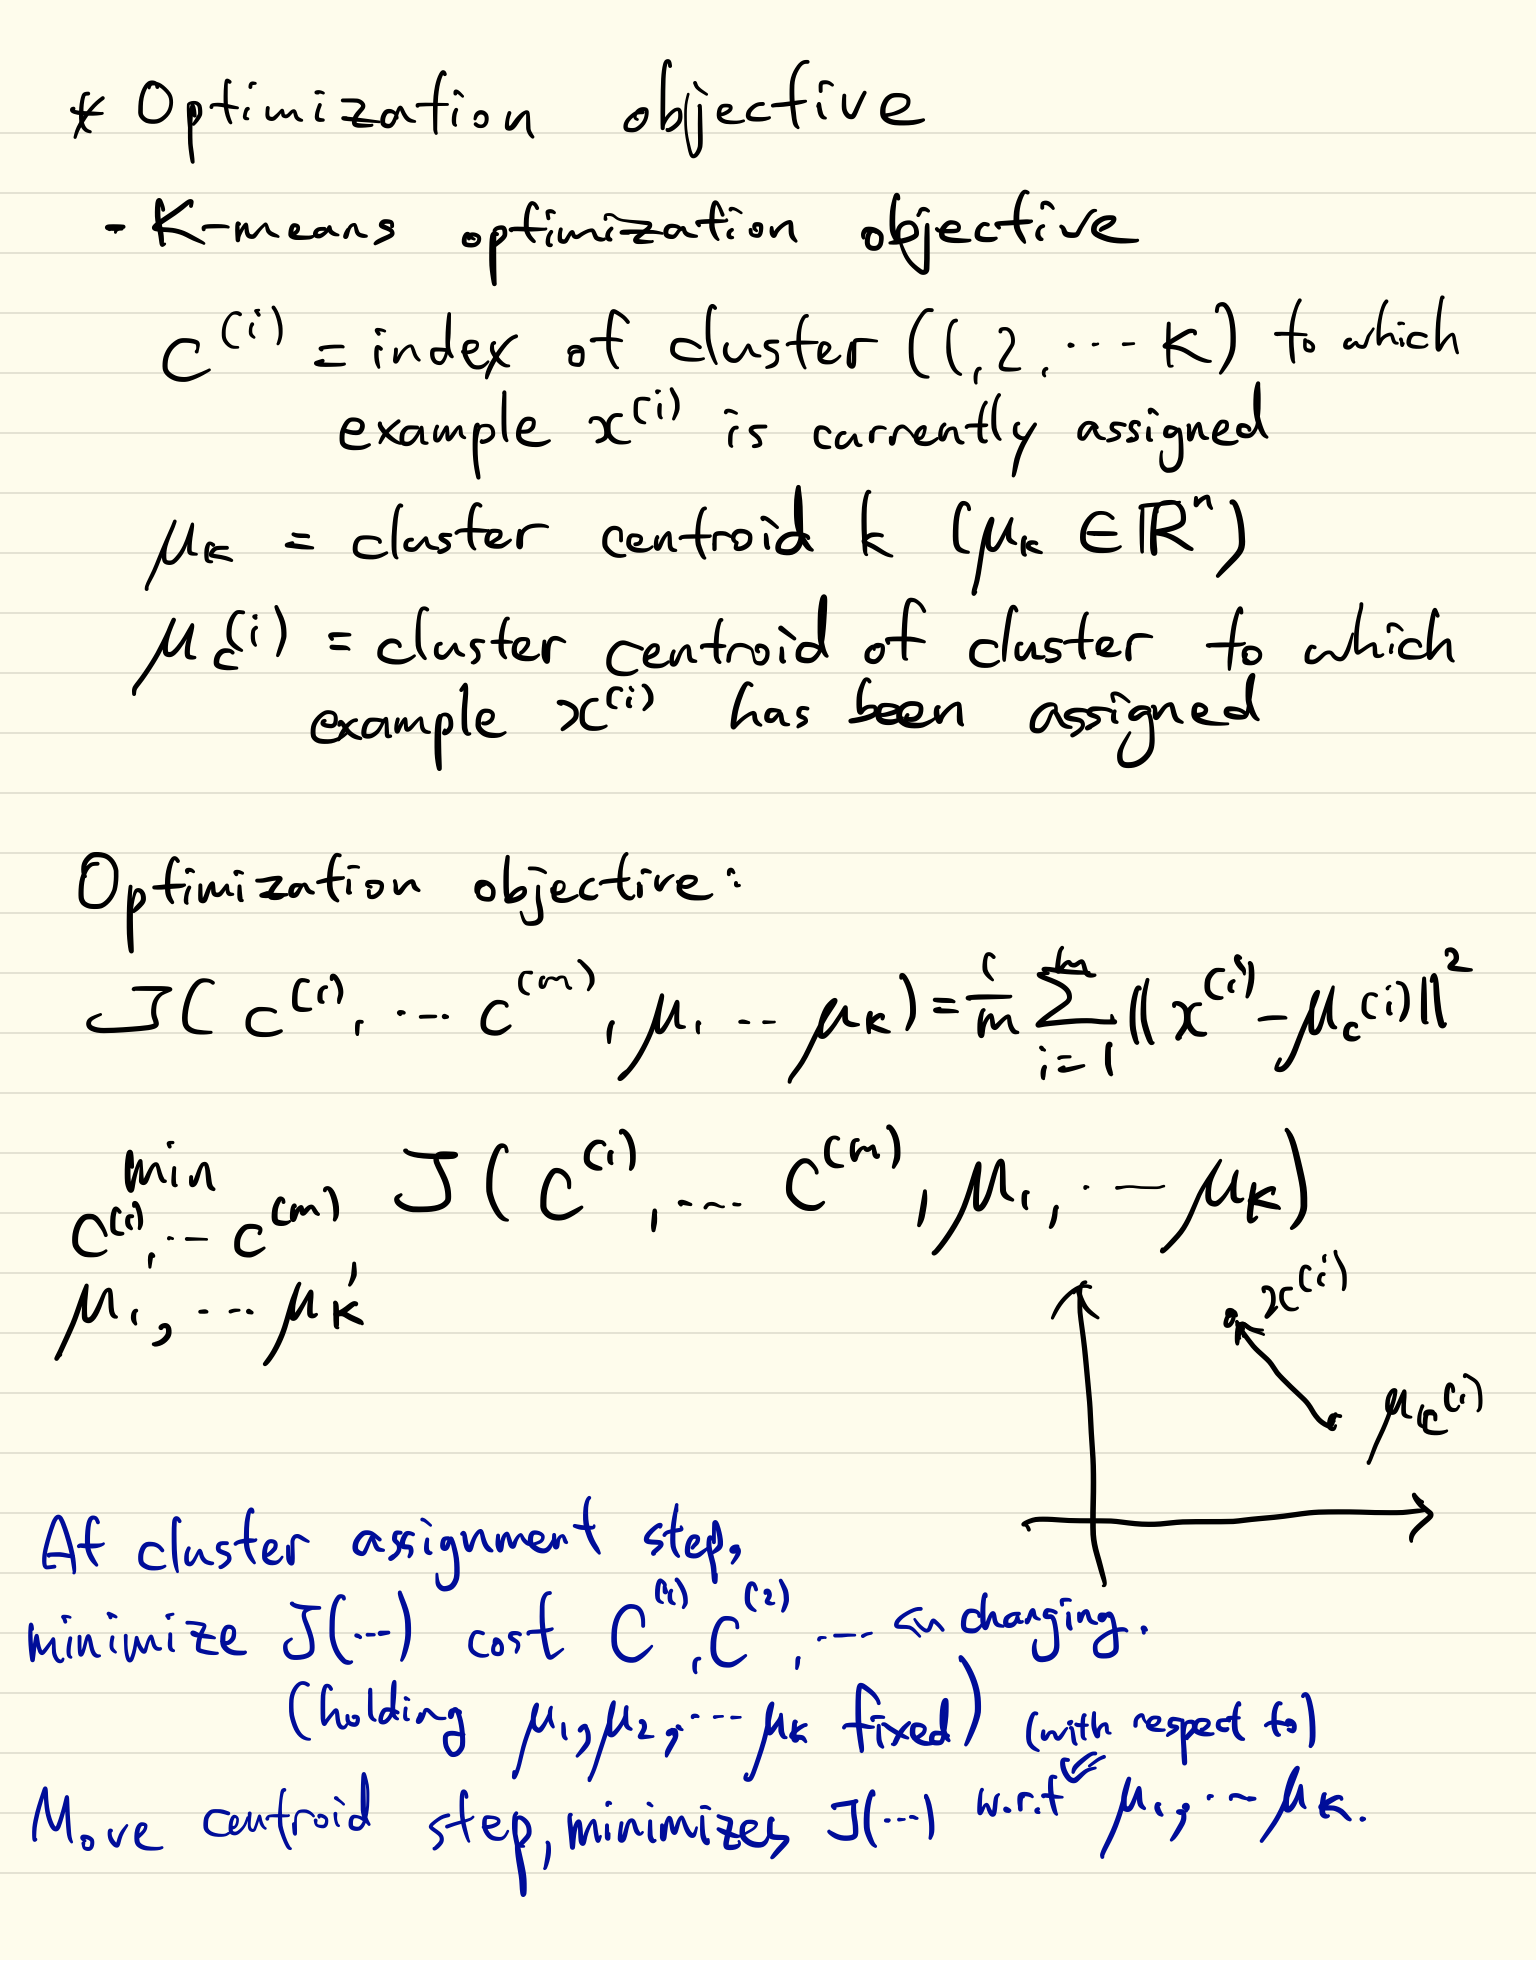 * Optimization objective
- K-means optimization objective
C^(i) = index of cluster (1,2, ... K) to which
example x^(i) is currently assigned
μ_k = cluster centroid k (μ_k ∈ ℝ^n)
μ_c^(i) = cluster centroid of cluster to which
example x^(i) has been assigned
Optimization objective:
J( c^(1), ... c^(m), μ_1 ... μ_K ) = 1/m Σ_{i=1}^m || x^(i) - μ_c^(i) ||^2
min J( C^(1), ... C^(m), μ_1, ... μ_K )
C^(1), ... c^(m),
μ_1, ... μ_K
x^(i)
μ_c^(i)
At cluster assignment step,
minimize J(...) cost C^(1), C^(2), ... changing.
(holding μ_1, μ_2, ... μ_K fixed) (with respect to)
Move centroid step, minimizes J(...) w.r.t μ_1, ... μ_K.